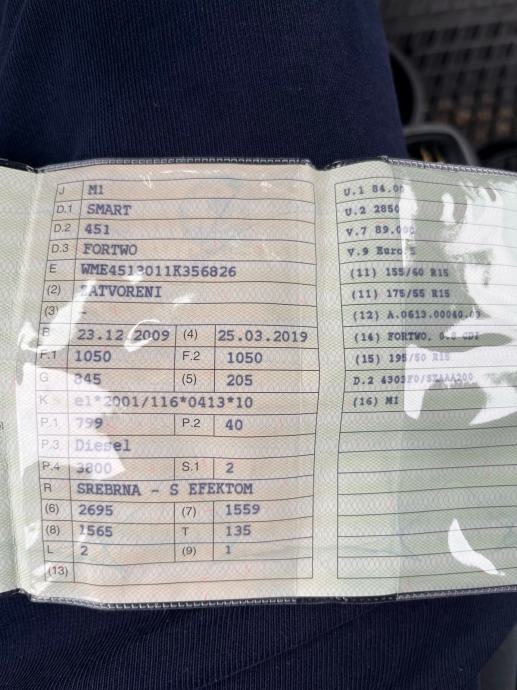 J M1
D.1 SMART
D.2 451
D.3 FORTWO
E WME4513011K356826
(2) ZATVORENI
(3) -
B 23.12.2009 (4) 25.03.2019
F.1 1050 F.2 1050
G 845 (5) 205
K e1*2001/116*0413*10
P.1 799 P.2 40
P.3 Diesel
P.4 3800 S.1 2
R SREBRNA - S EFEKTOM
(6) 2695 (7) 1559
(8) 1565 T 135
L 2 (9) 1
(13)
U.1 84.00
U.2 2850
V.7 89.000
V.9 Euro 5
(11) 155/60 R15
(11) 175/55 R15
(12) A.0613.00040.09
(14) FORTWO, 0.8 CDI
(15) 195/50 R15
D.2
(16) M1